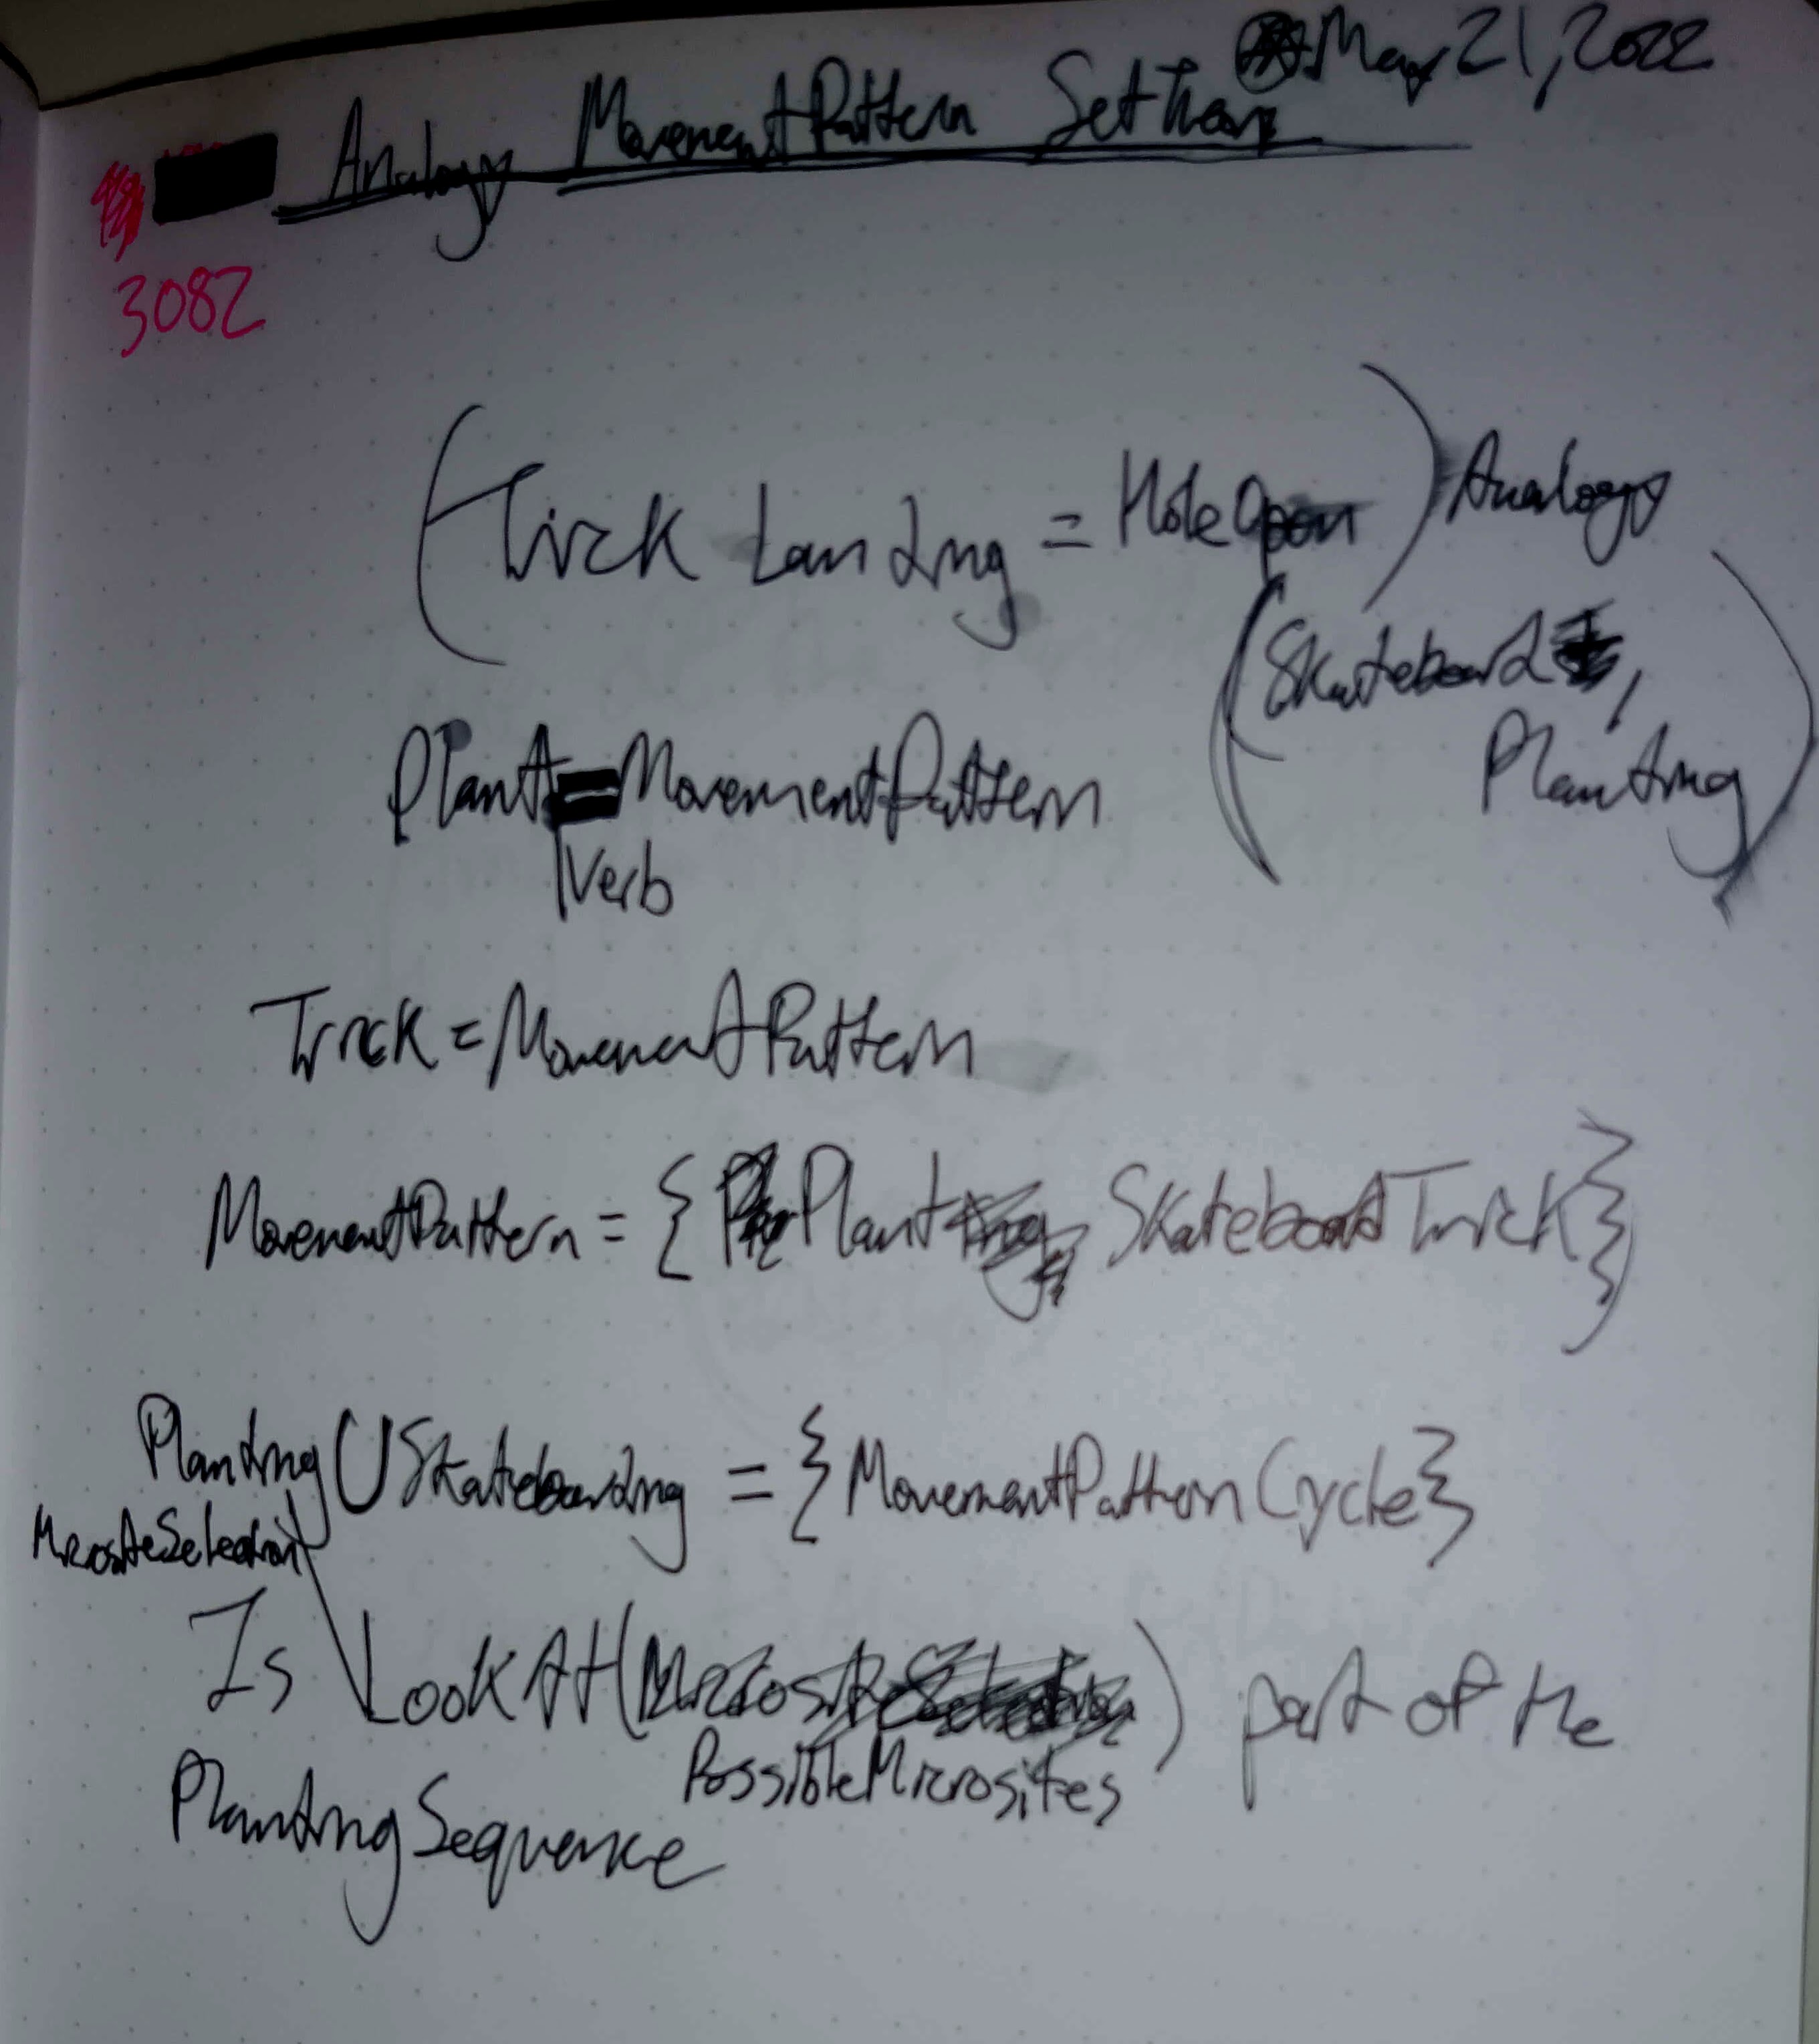 May 21, 2022
Analogy MovementPattern SetTheory
3082
(Trick Landing = HoleOpen) Analogy
(Skateboard,
Planting)
Plant = MovementPattern
Verb
Trick = MovementPattern
MovementPattern = { Plant, SkateboardTrick}
Planting U Skateboarding = {MovementPatternCycle}
MicrositeSelection
Is LookAt( ) part of the
PossibleMicrosites
PlantingSequence